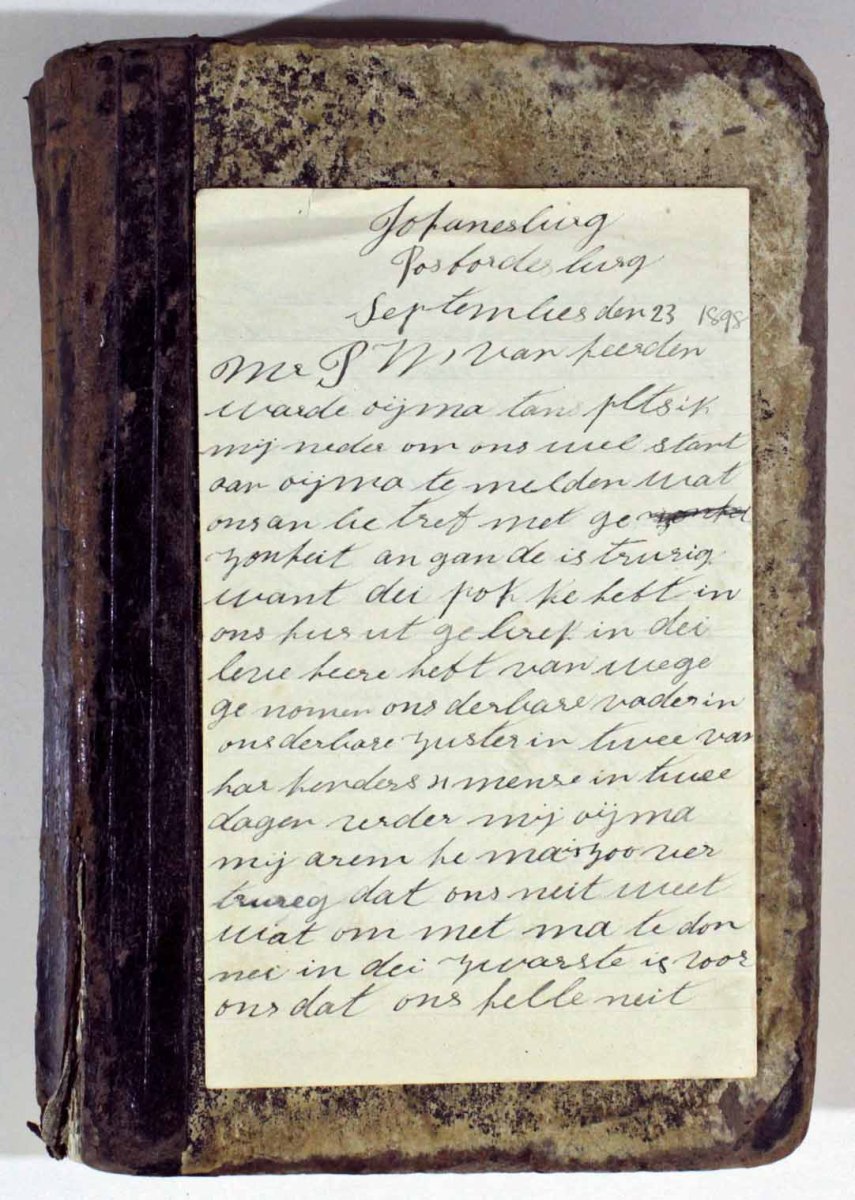 Johanesburg
Posfordesburg
September den 23 1898
Mr P W, van heerden
warde oijma tans pltsik
mij neder om ons wel stant
aan oijma te melden wat
ons an be tref met ge
zonheit an gan de is trurig
want dei pok ke hebt in
ons hus ut ge bref in dei
leve heere heft van wege
ge nomen ons derbare vader in
ons derbare zuster in twee van
har kenders mense in twee
dagen verder mij oijma
mij arem he ma is zoo ver
trureg dat ons neit weet
wat om met ma te don
nei in dei zwarste is voor
ons dat ons helle neit